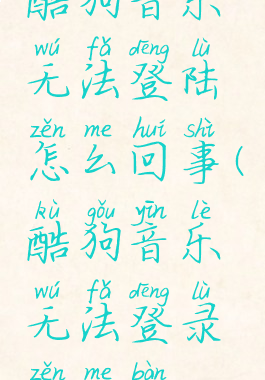 酷狗音乐
wú fǎ dēng lù
无法登陆
zěn me huí shì
怎么回事(
kù gǒu yīn lè
酷狗音乐
wú fǎ dēng lù
无法登录
zěn me bàn